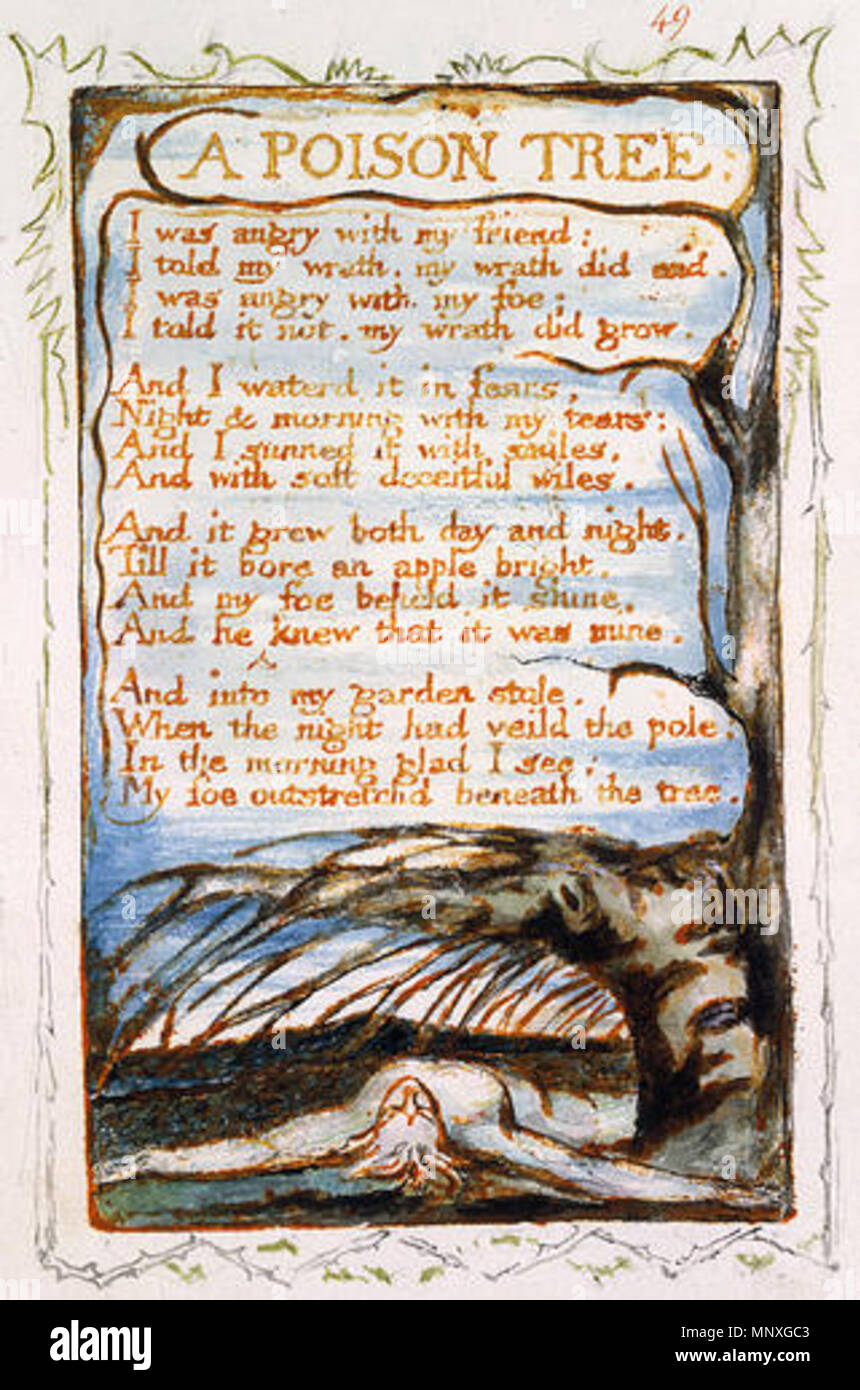 49
A POISON TREE.
I was angry with my friend:
I told my wrath. my wrath did end.
I was angry with my foe:
I told it not. my wrath did grow.
And I waterd it in fears,
Night & morning with my tears:
And I sunned it with smiles,
And with soft deceitful wiles.
And it grew both day and night.
Till it bore an apple bright.
And my foe beheld it shine.
And he knew that it was mine.
And into my garden stole.
When the night had veild the pole;
In the morning glad I see;
My foe outstretchd beneath the tree.
alamy
Image ID: MNXGC3
www.alamy.com